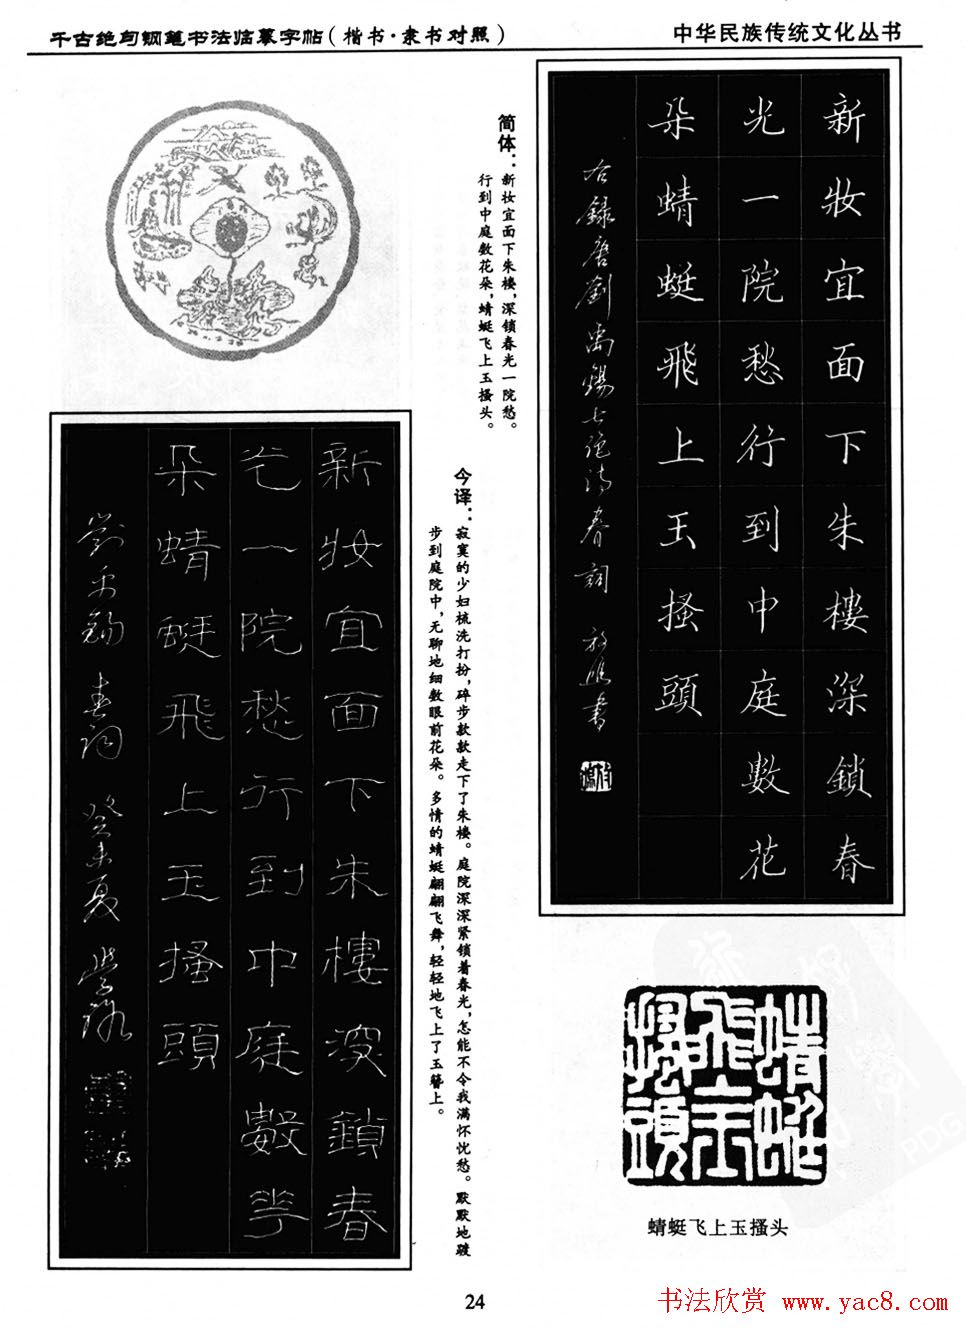 千古绝句钢笔书法临摹字帖（楷书·隶书对照）
中华民族传统文化丛书
新妝宜面下朱樓深鎖春
光一院愁行到中庭數花
朵蜻蜓飛上玉搔頭
右錄唐劉禹錫七絕詩春詞 書
简体：新妆宜面下朱楼，深锁春光一院愁。
行到中庭数花朵，蜻蜓飞上玉搔头。
今译：寂寞的少妇梳洗打扮，碎步款款走下了朱楼。庭院深深紧锁着春光，怎能不令我满怀忧愁。默默地踱
步到庭院中，无聊地细数眼前花朵。多情的蜻蜓翩翩飞舞，轻轻地飞上了玉簪上。
新妝宜面下朱樓深鎖春
光一院愁行到中庭數花
朵蜻蜓飛上玉搔頭
劉禹錫 春詞 癸未夏
蜻蜓
飛上玉
搔頭
蜻蜓飞上玉搔头
24
书法欣赏 www.yac8.com
PDG